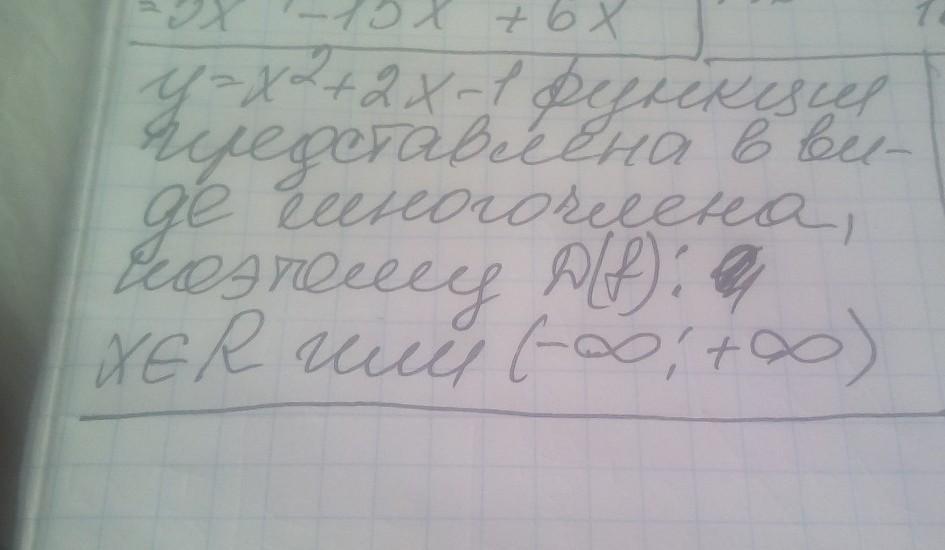 +6x
y=x²+2x-1 функция
представлена в ви-
де многочлена,
поэтому D(f):
x∈R или (-∞; +∞)